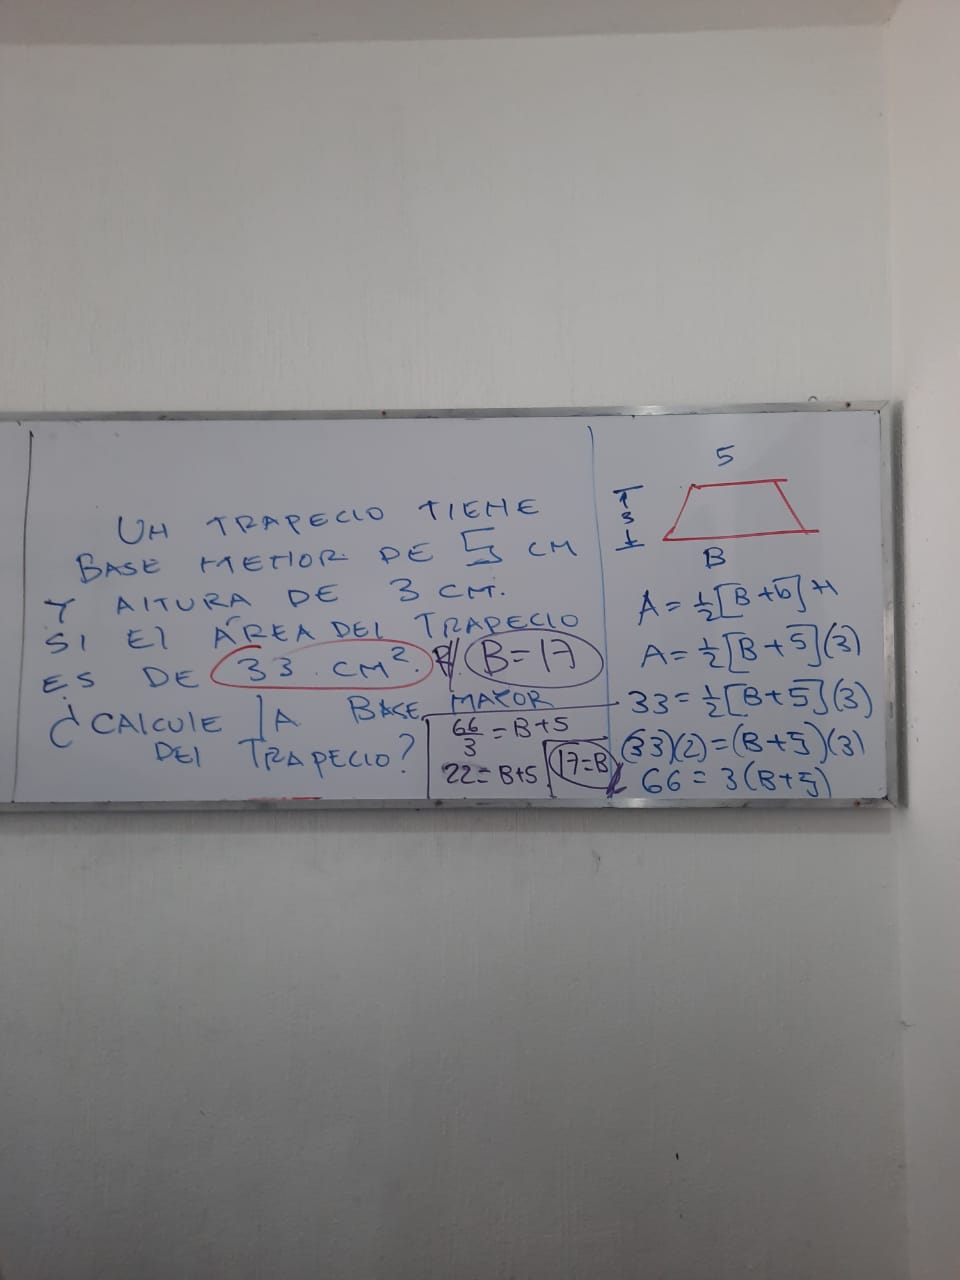 UN TRAPECIO TIENE
BASE MENOR DE 5 CM
Y ALTURA DE 3 CM.
SI El ÁREA DEl TRAPECIO
ES DE 33 CM². R// B=17
¿CALCULE lA BASE MAYOR
DEl TRAPECIO?
66/3 = B+5
22 = B+5
17=B
5
3
B
A = 1/2 [B+b] H
A = 1/2 [B+5](3)
33 = 1/2 [B+5](3)
(33)(2)=(B+5)(3)
66 = 3(B+5)